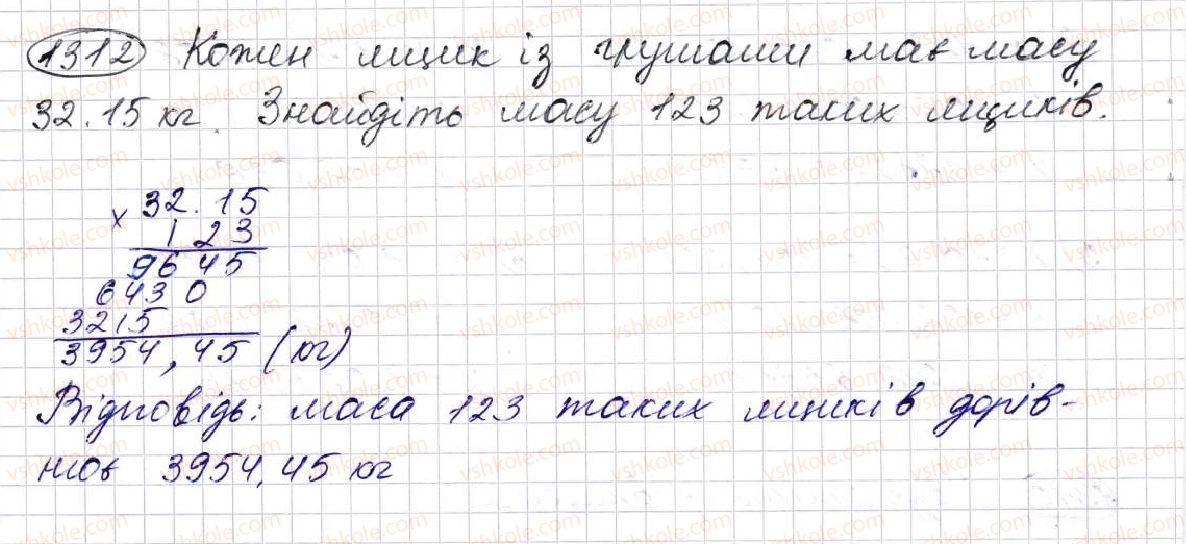 1312 Кожен ящик із грушами має масу
32.15 кг. Знайдіть масу 123 таких ящиків.
x 32.15
123
9645
6430
3215
3954,45 (кг)
Відповідь: маса 123 таких ящиків дорів-
нює 3954,45 кг